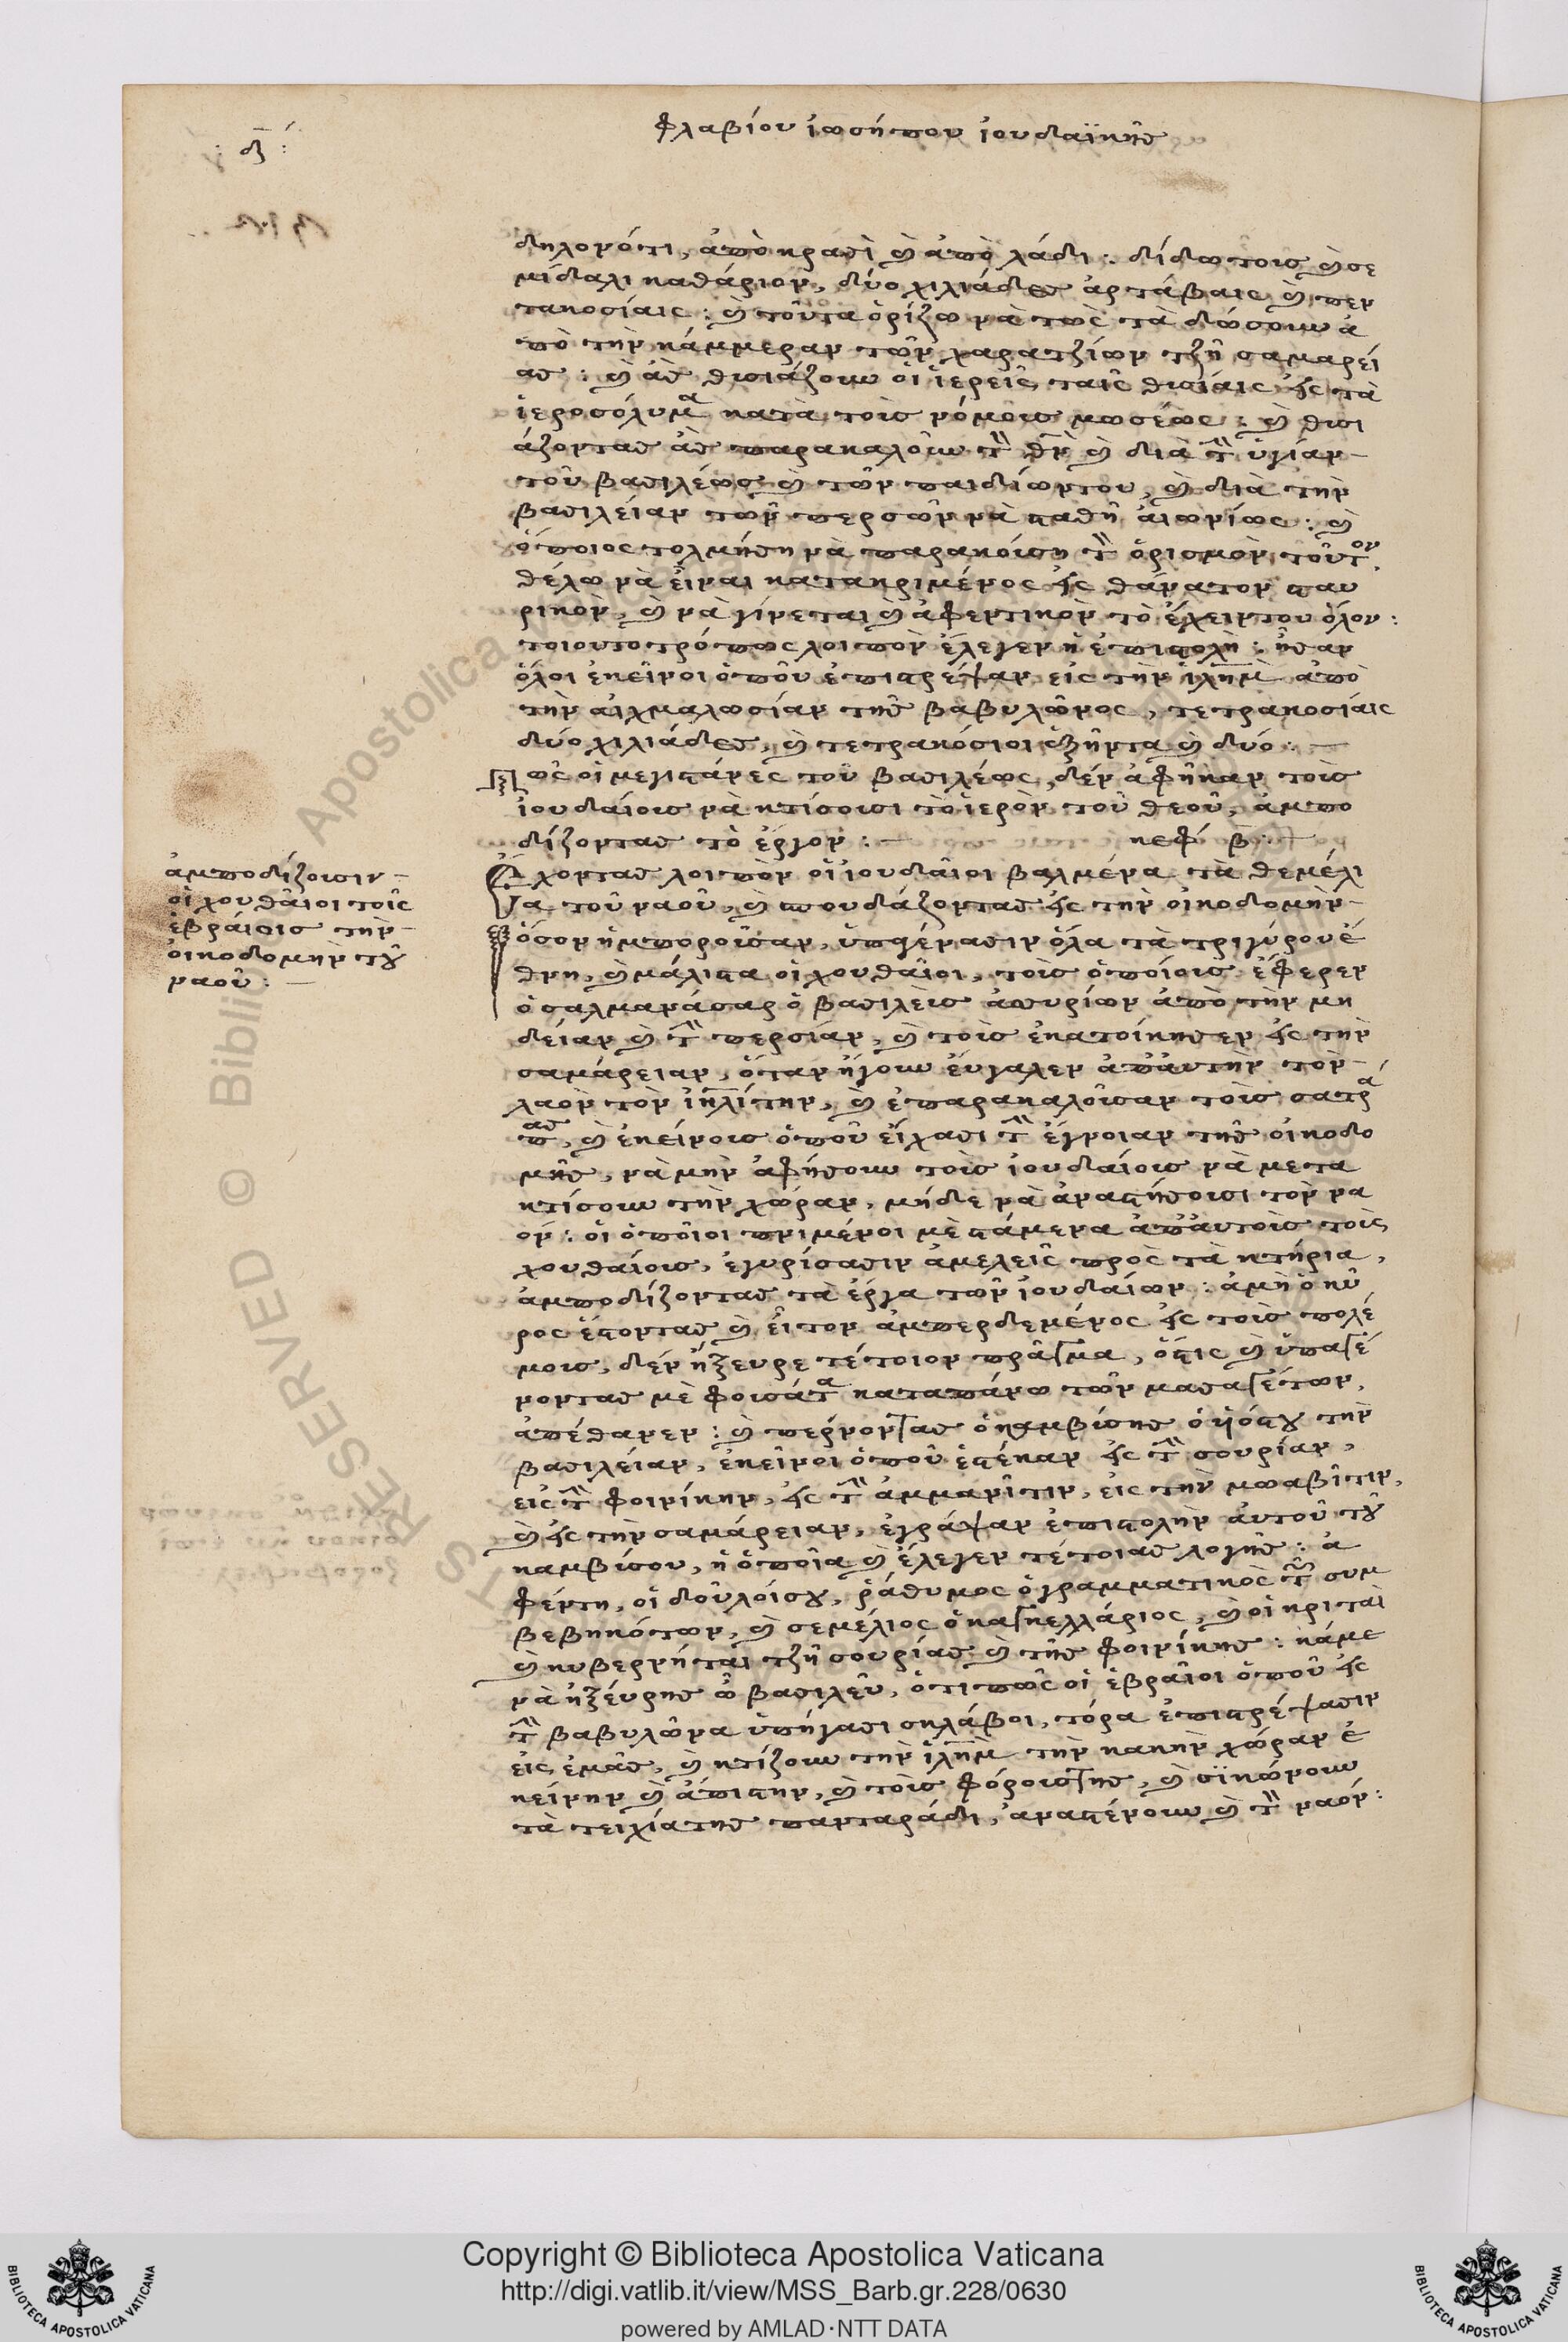 : δ :
φλαβίου ἰωσήπου ἰουδαϊκῆς
δηλονότι, ἀπὸ κρασὶ καὶ ἀπὸ λάδι : δίδω τοὺς καὶ σε
μίδαλι καθάριον, δύο χιλιάδες ἀρτάβαις καὶ πεν
τακοσίαις : καὶ τοῦτα ὁρίζω νὰ τοὺς τὰ δώσουν ἀ
πὸ τὴν κάμμεραν τῶν χαρατζίων τζῆ σαμαρεί
ας : καὶ ἂς θυσιάζουν οἱ ἱερεῖς ταῖς θυσίαις εἰς τὰ
ἱεροσόλυμα κατὰ τοὺς νόμους μωσέως : καὶ θυσι
άζοντας ἂς παρακαλοῦν τὸν θν καὶ διὰ τὴν ὑγίαν
τοῦ βασιλέως καὶ τῶν παιδίων του, καὶ διὰ τὴν
βασιλείαν τῶν περσῶν νὰ σταθῆ αἰωνίως : καὶ
ὁποῖος τολμήση νὰ παρακούση τὸν ὁρισμὸν τοῦτον
θέλω νὰ εἶναι κατακριμένος εἰς θάνατον σταυ
ρικὸν, καὶ νὰ γίνεται καὶ ἀφεντικὸν τὸ ἔχειν του ὅλον :
τοιουτοτρόπως λοιπὸν ἔλεγεν ἡ ἐπιστολὴ : ἦσαν
ὅλοι ἐκεῖνοι ὁποῦ ἐπιστρέψαν εἰς τὴν ἱλὴμ ἀπὸ
τὴν αἰχμαλωσίαν τῆς βαβυλῶνος, τετρακοσίαις
δύο χιλιάδες, καὶ τετρακόσιοι ἑξῆντα καὶ δυό :
πῶς οἱ μεγιστάνες τοῦ βασιλέως, δὲν ἀφῆκαν τοὺς
ἰουδαίους νὰ κτίσουσι τὸ ἱερὸν τοῦ θεοῦ, ἀμπο
δίζοντας τὸ ἔργον : κεφ β :
ἀμποδίζουσιν
οἱ χουθαῖοι τοῖς
ἑβραίοις τὴν
οἰκοδομὴν τοῦ
ναοῦ :
Ἔχοντας λοιπὸν οἱ ἰουδαῖοι βαλμένα τὰ θεμέλι
α τοῦ ναοῦ, καὶ σπουδάζοντας εἰς τὴν οἰκοδομὴν
ὅσον ἠμποροῦσαν, ὑπῆαν ὅλα τὰ τριγύρου ἔ
θνη, καὶ μάλιστα οἱ χουθαῖοι, τοὺς ὁποίους ἔφερεν
ὁ σαλμανάσαρ ὁ βασιλεὺς ἀσσυρίων ἀπὸ τὴν μη
δείαν καὶ τὴν περσίαν, καὶ τοὺς ἐκατοίκησεν εἰς τὴν
σαμάρειαν, ὅταν ἤγουν εὔγαλεν ἀπ' αὐτὴν τὸν
λαὸν τὸν ἰηλίτην, καὶ ἐπαρακαλοῦσαν τοὺς σατρά
πας, καὶ ἐκείνους ὁποῦ εἴχασι τὴν ἔγνοιαν τῆς οἰκοδο
μῆς, νὰ μὴν ἀφήσουν τοὺς ἰουδαίους νὰ μετα
κτίσουν τὴν χώραν, μήδε νὰ ἀναστήσουσι τὸν να
όν : οἱ ὁποῖοι πριμένοι μὲ στάμενα ἀπ' αὐτοὺς τοὺς
χουθαίους, ἐγυρίσασιν ἀμελεῖς πρὸς τὰ κτήρια,
ἀμποδίζοντας τὰ ἔργα τῶν ἰουδαίων : ἀμὴ ὁ κῦ
ρος ἔστοντας καὶ εἶτον ἀμπερδεμένος εἰς τοὺς πολέ
μους, δὲν ἤξευρε τέτοιον πρᾶγμα, ὅστις καὶ ὑπαγέ
νοντας μὲ φουσάτα καταπάνω τῶν μασαγέτων,
ἀπέθανεν : καὶ πέρνοντας ὁ καμβίσης ὁ ὑιόςτου τὴν
βασιλείαν, ἐκεῖνοι ὁποῦ ἐστέκαν εἰς τὴν συρίαν,
εἰς τὴν φοινίκην, εἰς τὴν ἀμμανῖτιν, εἰς τὴν μωαβῖτιν,
καὶ εἰς τὴν σαμάρειαν, ἐγράψαν ἐπιστολὴν αὐτοῦ τοῦ
καμβίσου, ἡ ὁποῖα καὶ ἔλεγεν τέτοιας λογῆς : ἀ
φέντη, οἱ δοῦλοίσου, ῥάθυμος ὁ γραμματικὸς τῶν συμ
βεβηκότων, καὶ σεμέλιος ὁ καγκελλάριος, καὶ οἱ κριταὶ
καὶ κυβερνήται τζῆ συρίας καὶ τῆς φοινίκης : κάμε
νὰ ἠξεύρης ὦ βασιλεῦ, ὅτι πῶς οἱ ἑβραῖοι ὁποῦ εἰς
τὴν βαβυλῶνα ὑπήγασι σκλάβοι, τόρα ἐπιστρέψασιν
εἰς ἐμᾶς, καὶ κτίζουν τὴν ἱλὴμ τὴν κακὴν χώραν ἐ
κείνην καὶ ἄπιστην, καὶ τοὺς φόρουςτης, καὶ σϊκώνουν
τὰ τειχίατης πανταράδι, ἀναστένουν καὶ τὸν ναόν :
Copyright © Biblioteca Apostolica Vaticana
http://digi.vatlib.it/view/MSS_Barb.gr.228/0630
powered by AMLAD·NTT DATA